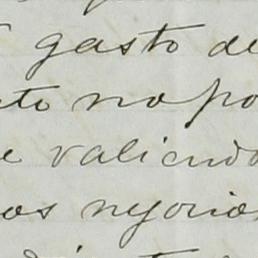 gasto de
no po
e valiendo
os negocios